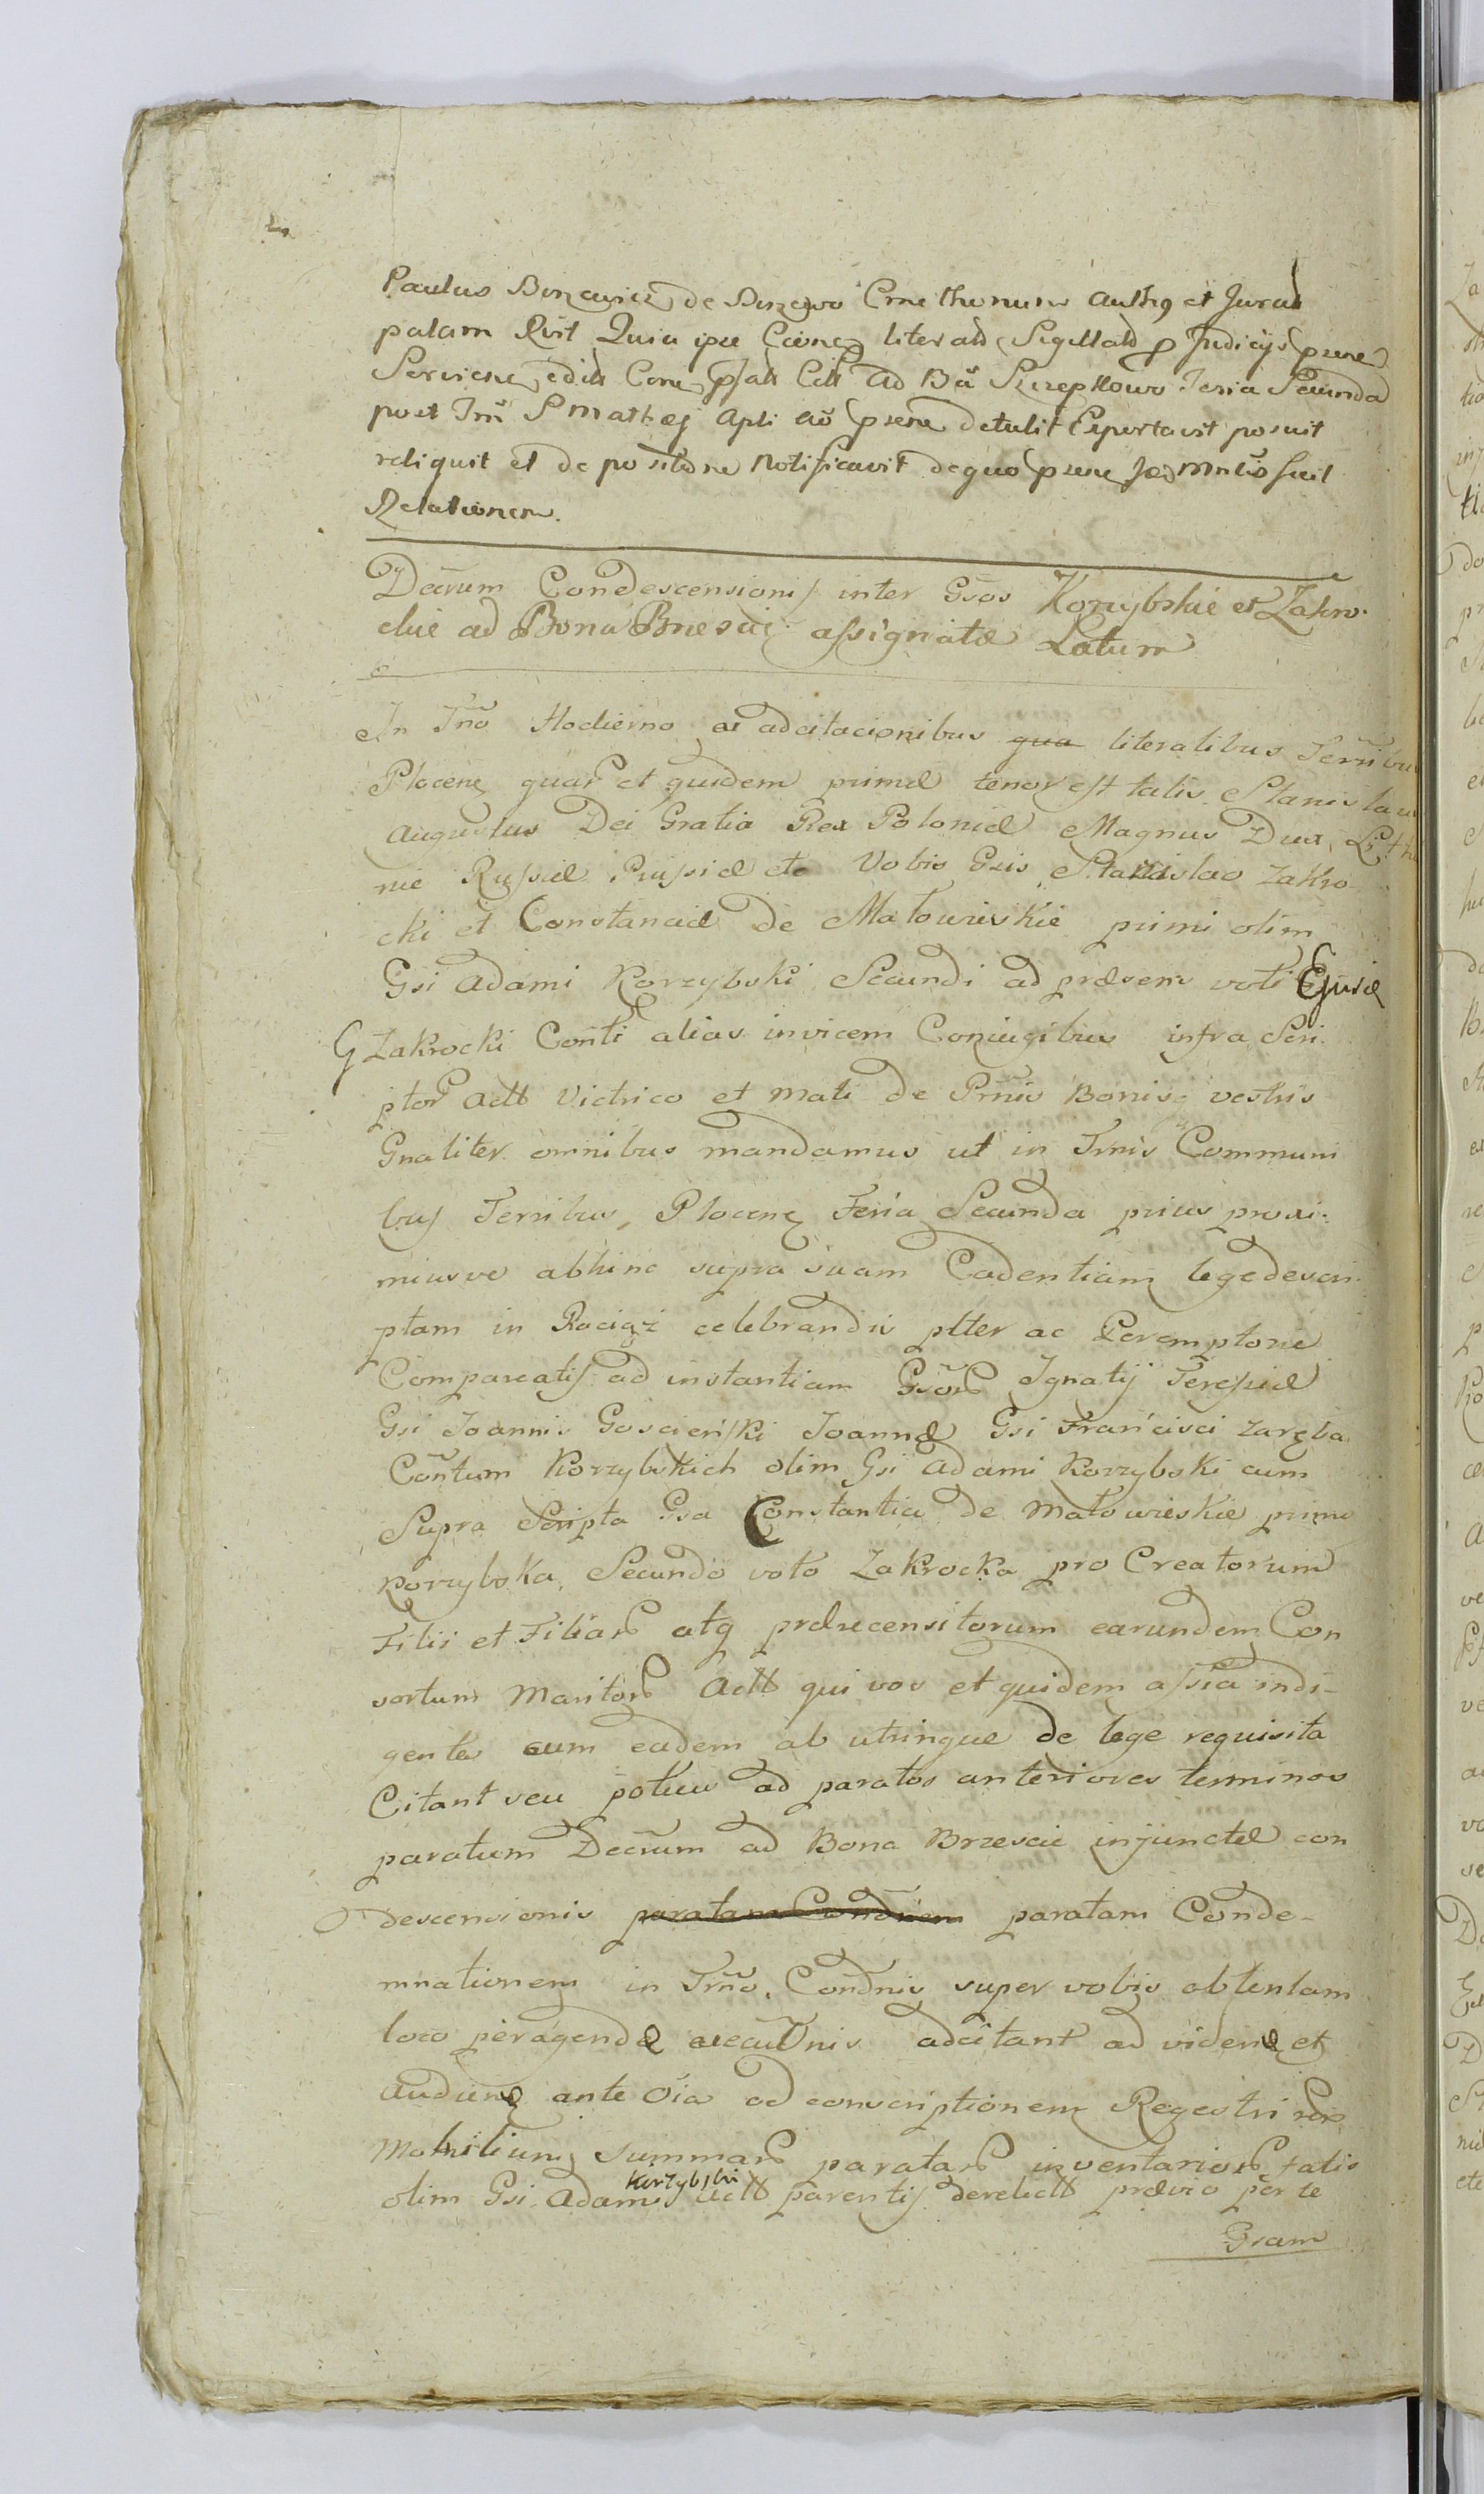 Paulus de Cmethonum Auths et Jurat
palam Rvit Quia ipse literal Sigillal p Judicijs psene
ad Ba Szczepkowo Feria Secunda
post Frm S Mathej Apli ao psene detulit Exportavit posuit
reliquit et de positione Notificavit de quo psene Jud fecit
Relationem.
Decrum Condescensionis inter Gsos Korzybskie et Zakro-
ckie ad Bona Brescie assignatæ Latum
In Trño Hodierno ex adcitacionibus qua literalibus Terribu
Plocen quar et quidem primæ tenor est talis Stanislau
Augustus Dei Gratia Rex Poloniæ Magnus Dux Lith
nie Russiæ Prussiæ etc Vobis Gsis Stanislao Zakro
cki et Constanciæ de Matowieskie primi olim
Gsi Adami Korzybski Secundi ad præsens voti Ejusd
G Zakrocki Conti alias invicem Coniugibus infra Scri-
ptor Actt Victrico et Mati de Prmis Bonisq vestris
Gnaliter omnibus mandamus ut in Trnis Communi
bus Terribus Plocen Feria Secunda prius proxi-
miusve abhinc supra suam Cadentiam lege descri-
ptam in Raciąż celebrandis ptter ac Peremptorie
Compareatis ad instantiam Gsor Ignatij Teressiæ
Gsi Joannis Goscieński Joannæ Gsi Francisci Zaręba
Contum Korzybskich olim Gsi Adami Korzybski cum
Supra Scripta Gsa Constantia de Matowieskie primo
Korzybska Secundo voto Zakrocka pro Creatorum
Filii et Filiar atq prærecensitorum earundem Con
sortum Maritor Actt qui vos et quidem assia indi-
gente cum eadem ab utrinque de lege requisita
Citant seu potius ad paratos anteriores terminos
paratum Decrum ad Bona Brzescie injunctæ con
descensionis paratam Condnem paratam Conde-
mnationem in Trño Condnis super vobis obtentam
loco peragendæ execuonis adcitant ad viden et
Audien ante oia ad conscriptionem Regestri rer
Mobilium summar paratar inventarior talis
olim Gsi Adami Korzybski Actt parentis derelictt prævio per te
Gsam